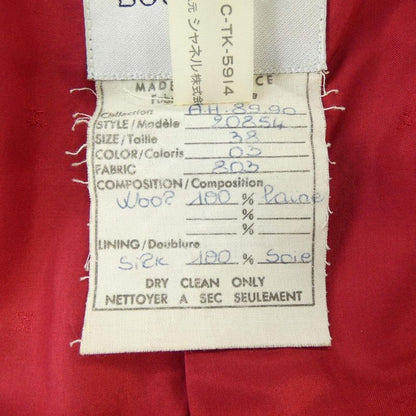 BOU
C-TK-5914
元 シャネル株式会社
MADE CE
Collection A.H. 89.90
STYLE/Modèle 20854
SIZE/Taille 38
COLOR/Coloris 03
FABRIC 803
COMPOSITION/Composition
Wool 100 % Laine
%
%
LINING/Doublure
Silk 100 % Soie
DRY CLEAN ONLY
NETTOYER A SEC SEULEMENT